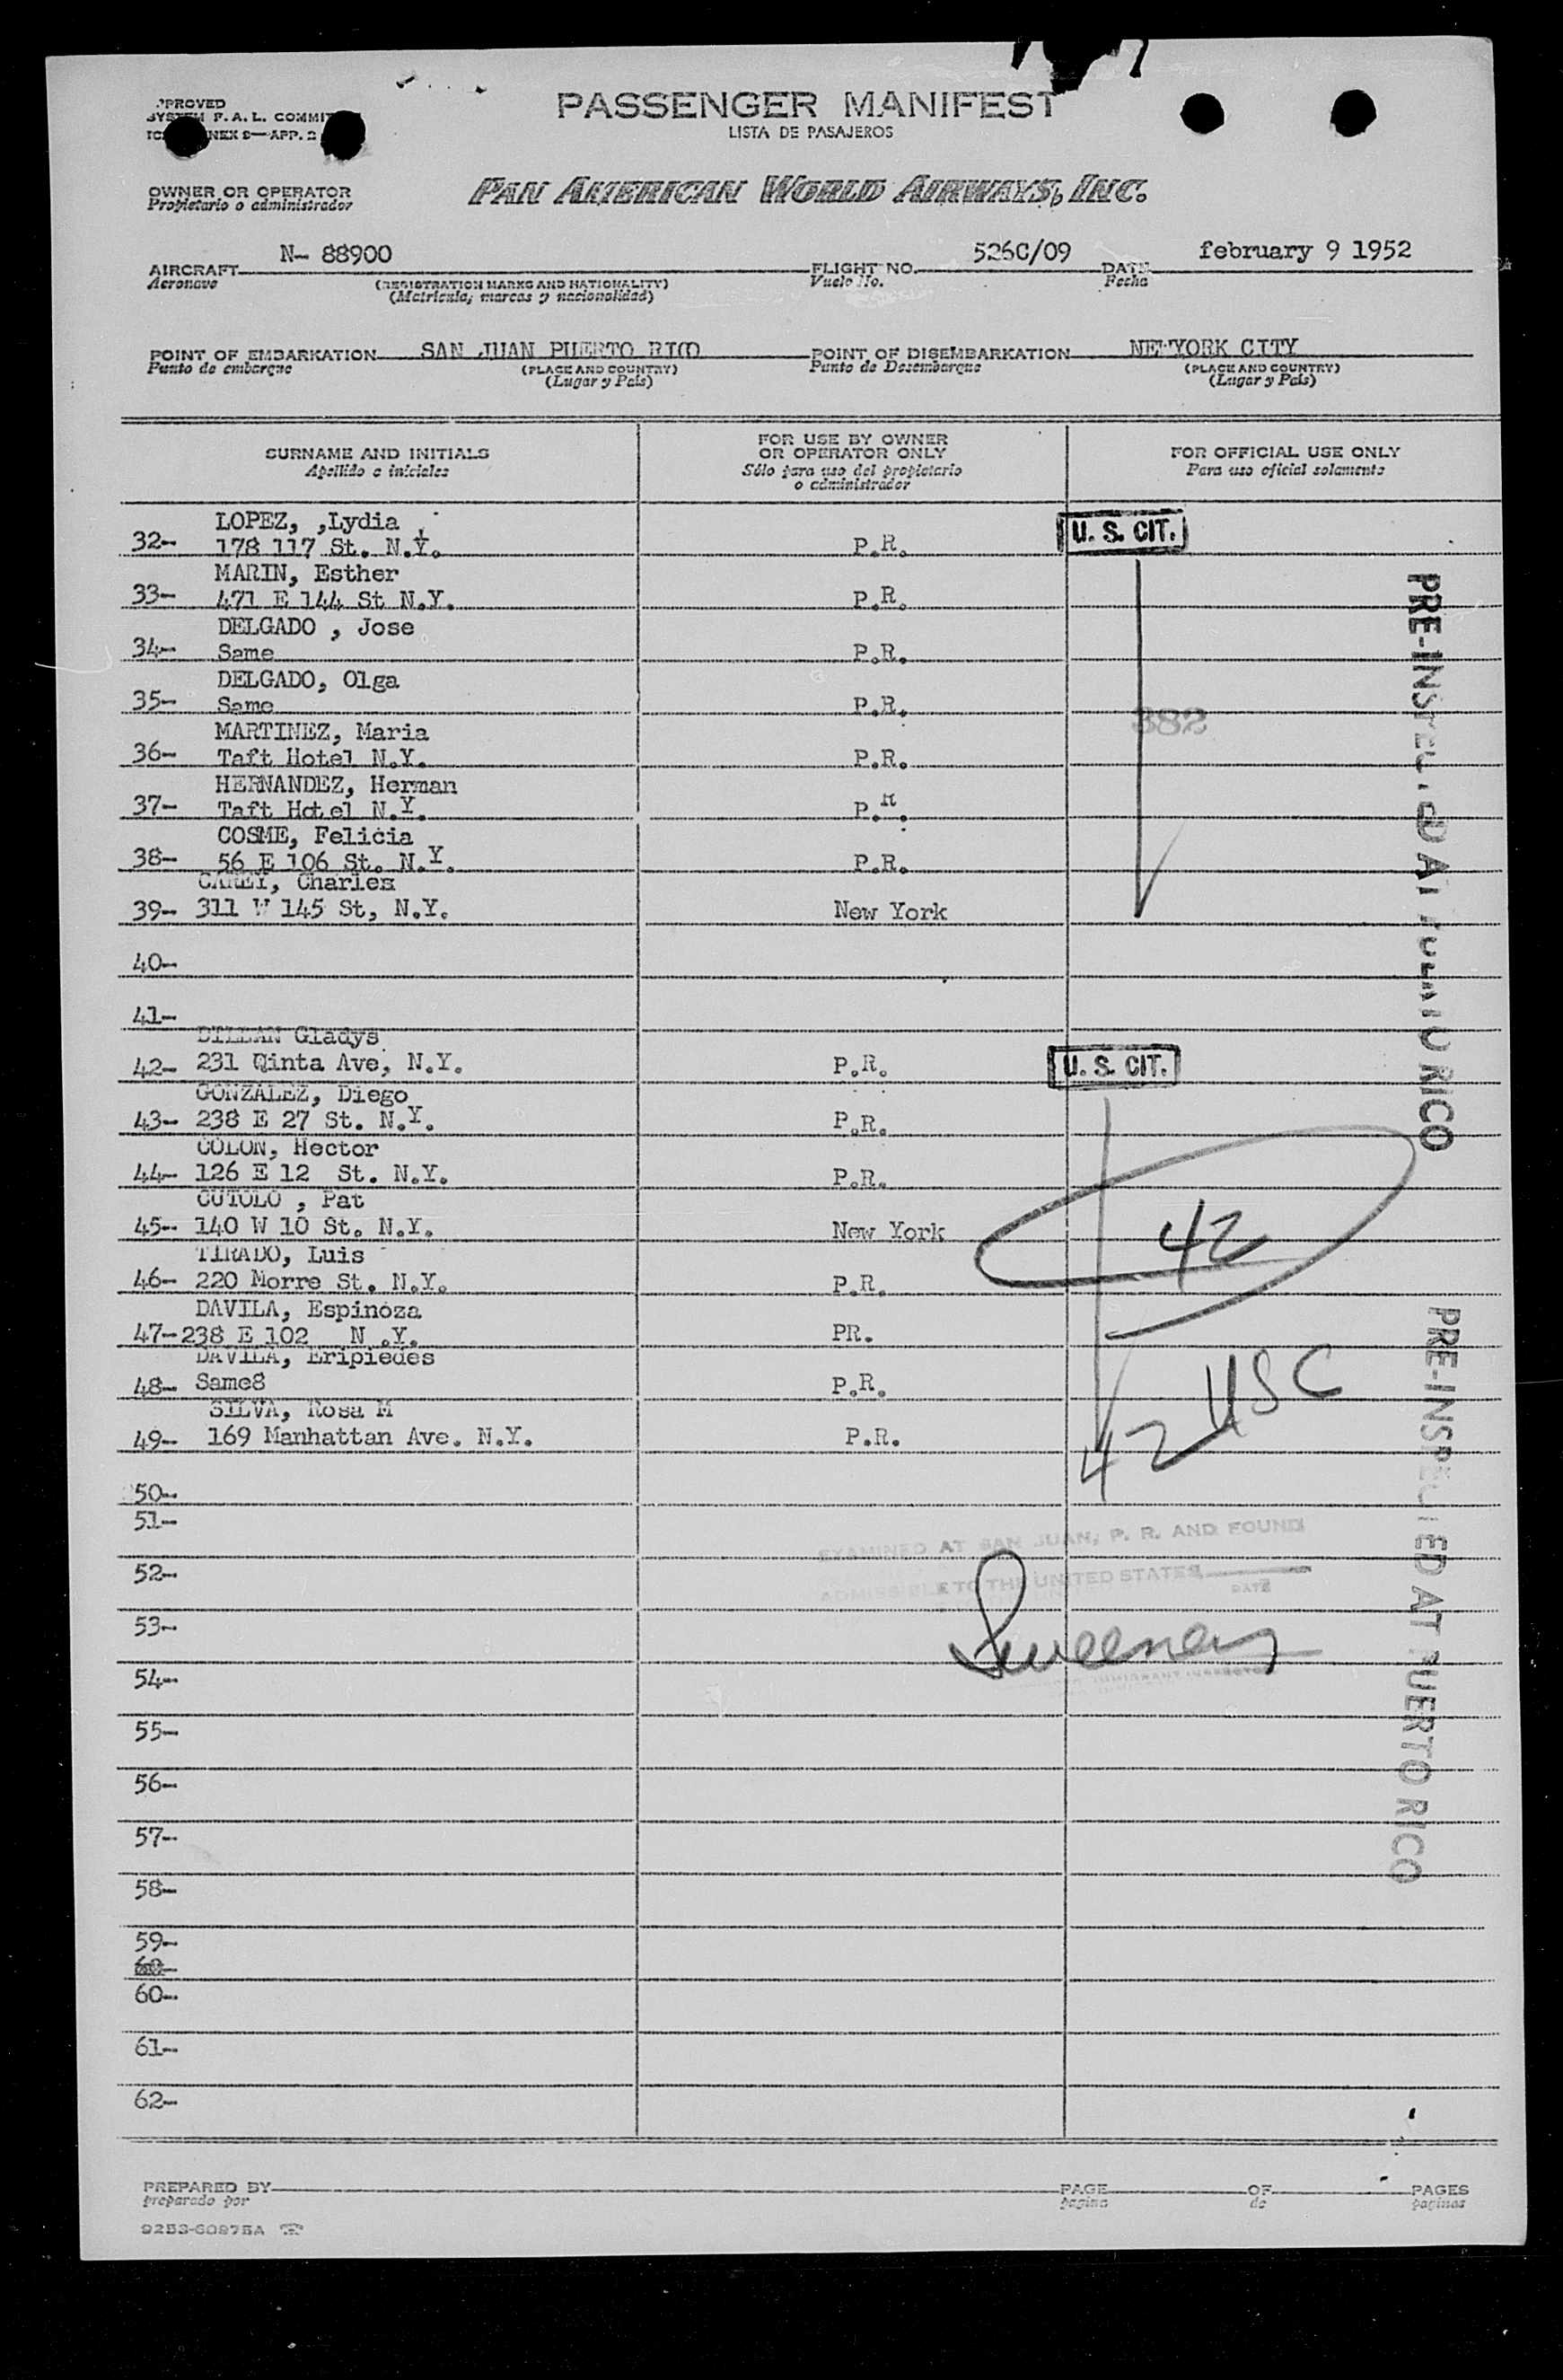 PASSENGER MANIFEST
LISTA DE PASAJEROS
F. A. L.
9—APP. 2
OWNER OR OPERATOR
Propietario o administrador
PAN AMERICAN WORLD AIRWAYS, INC.
AIRCRAFT N- 88900 FLIGHT NO. 526C/09 DATE february 9 1952
Aeronave (REGISTRATION MARKS AND NATIONALITY) Vuelo No. Fecha
(Matricula, marcas y nacionalidad)
POINT OF EMBARKATION SAN JUAN PUERTO RICO POINT OF DISEMBARKATION NEW YORK CITY
Punto de embarque (PLACE AND COUNTRY) Punto de Desembarque (PLACE AND COUNTRY)
(Lugar y País) (Lugar y País)
SURNAME AND INITIALS
Apellido e iniciales
FOR USE BY OWNER
OR OPERATOR ONLY
Sólo para uso del propietario
o administrador
FOR OFFICIAL USE ONLY
Para uso oficial solamente
LOPEZ, ,Lydia
32- 178 117 St. N.Y. P.R. U. S. CIT.
MARIN, Esther
33- 471 E 144 St N.Y. P.R.
DELGADO , Jose
34- Same P.R.
DELGADO, Olga
35- Same P.R.
382
MARTINEZ, Maria
36- Taft Hotel N.Y. P.R.
HERNANDEZ, Herman
37- Taft Hotel N.Y. P.R.
COSME, Felicia
38- 56 E 106 St. N.Y. P.R.
CAREY, Charles
39- 311 W 145 St, N.Y. New York
40-
41-
Gladys
42- 231 Qinta Ave, N.Y. P.R. U. S. CIT.
GONZALEZ, Diego
43- 238 E 27 St. N.Y. P.R.
COLON, Hector
44- 126 E 12 St. N.Y. P.R.
CUTOLO , Pat
45- 140 W 10 St. N.Y. New York 42
TIRADO, Luis
46- 220 Morre St. N.Y. P.R.
DAVILA, Espinoza
47-238 E 102 N .Y. PR.
DAVILA, Eripiedes
48- Same8 P.R.
SILVA, Rosa M
49- 169 Manhattan Ave. N.Y. P.R.
42 USC
50-
51-
EXAMINED AT SAN JUAN, P. R. AND FOUND
52-
ADMISSIBLE TO THE UNITED STATES
DATE
53-
Sweeney
IMMIGRANT INSPECTOR
54-
55-
56-
57-
58-
59-
60-
61-
62-
PRE-INSPECTED AT PUERTO RICO
PRE-INSPECTED AT PUERTO RICO
PREPARED BY PAGE OF PAGES
preparado por pagina de paginas